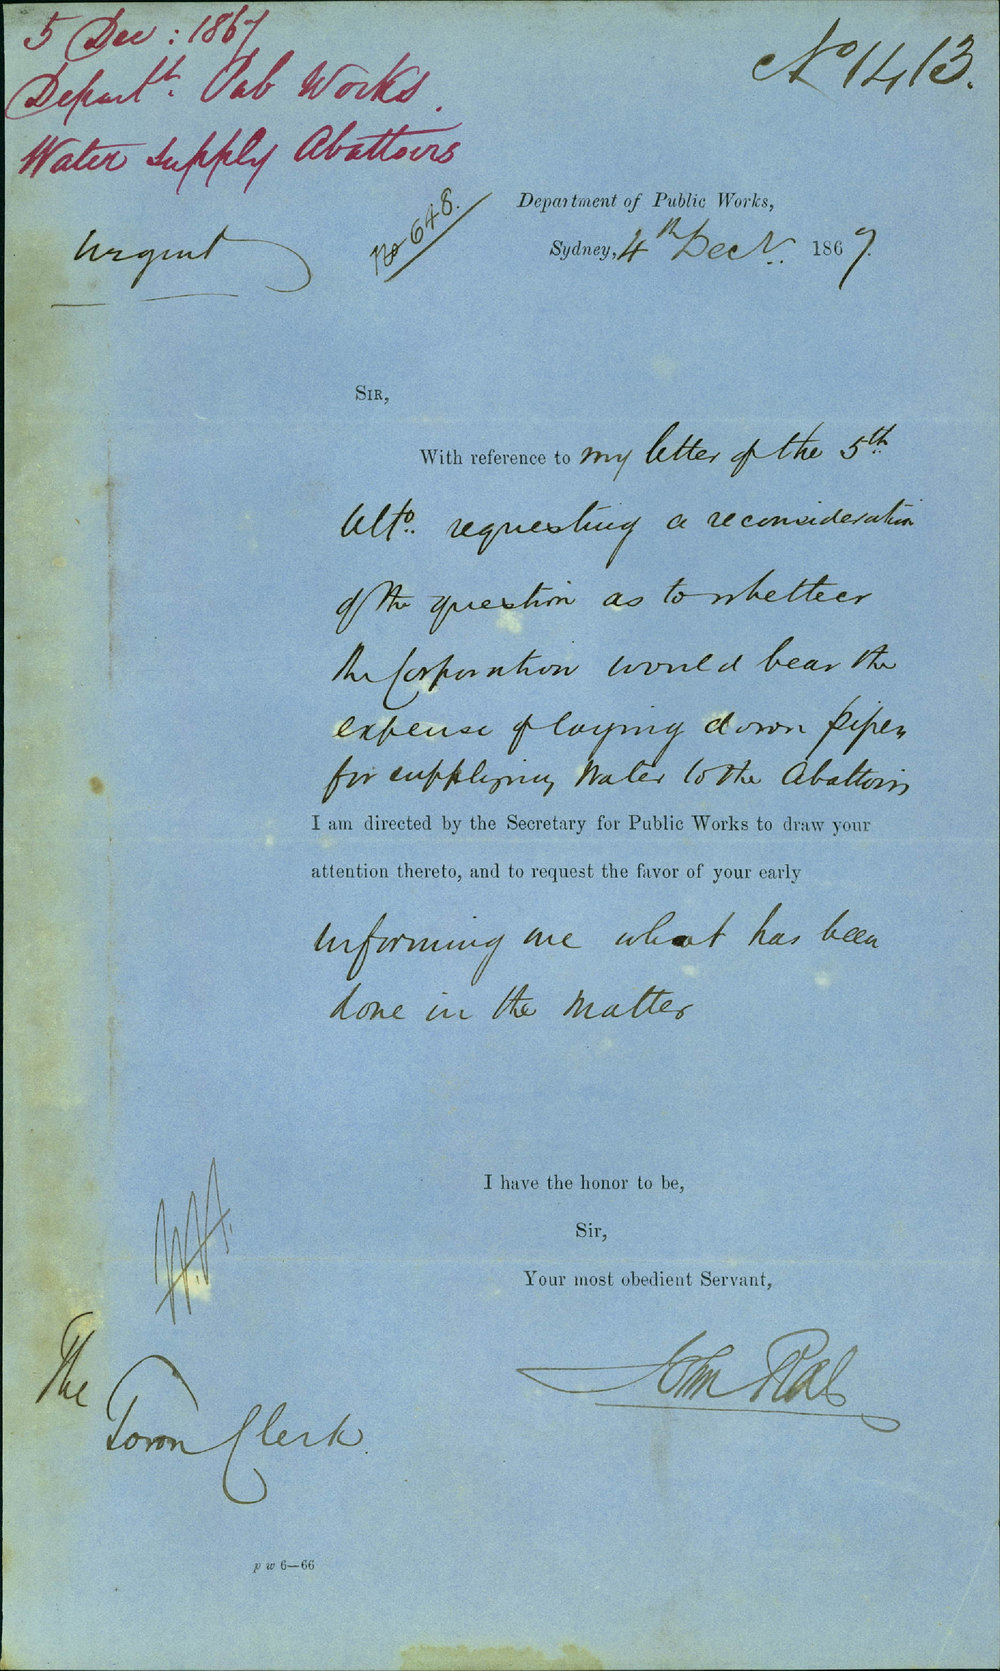 5 Dec : 1867
Departth. Pub Works.
Water supply Abattoirs
No 1413.
Urgent
No 648.
Department of Public Works,
Sydney, 4th Decr. 1867.
SIR,
With reference to my letter of the 5th
Ulto. requesting a reconsideration
of the question as to whether
the Corporation would bear the
expense of laying down pipes
for supplying Water to the Abattoirs
I am directed by the Secretary for Public Works to draw your
attention thereto, and to request the favor of your early
informing me what has been
done in the Matter
I have the honor to be,
Sir,
Your most obedient Servant,
John Rae
The
Town Clerk.
p w 6—66